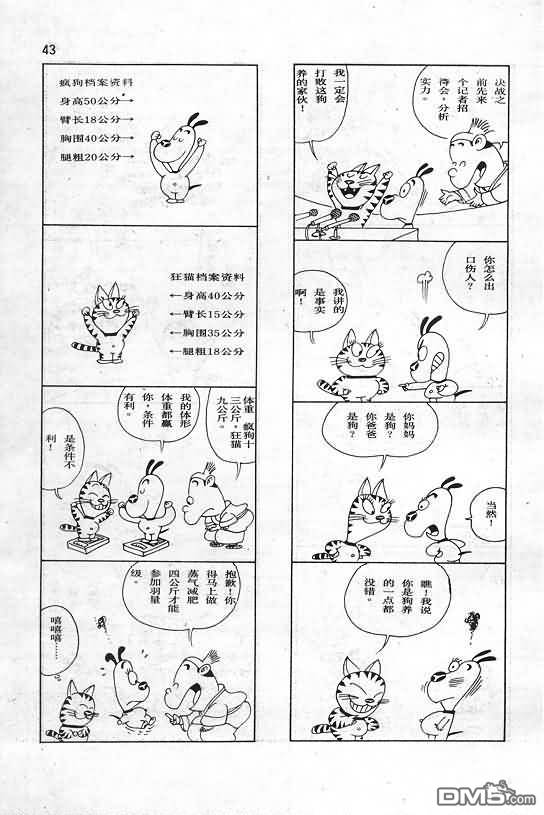 43
疯狗档案资料
身高50公分→
臂长18公分→
胸围40公分→
腿粗20公分→
狂猫档案资料
←身高40公分
←臂长15公分
←胸围35公分
←腿粗18公分
体重，疯狗十
三公斤，狂猫
九公斤。
我的体形
体重都赢
你，条件
有利。
是条件不
利！
抱歉！你
得马上做
蒸气减肥
四公斤才能
参加羽量
级。
嘻嘻
嘻嘻……
决战之
前先来
个记者招
待会，分析
实力。
我一定会
打败这狗
养的家伙！
你怎么出
口伤人？
我讲的
是事实
啊！
你妈妈
是狗？
你爸爸
是狗？
当然！
瞧！我说
你是狗养
的一点都
没错。
DM5.com